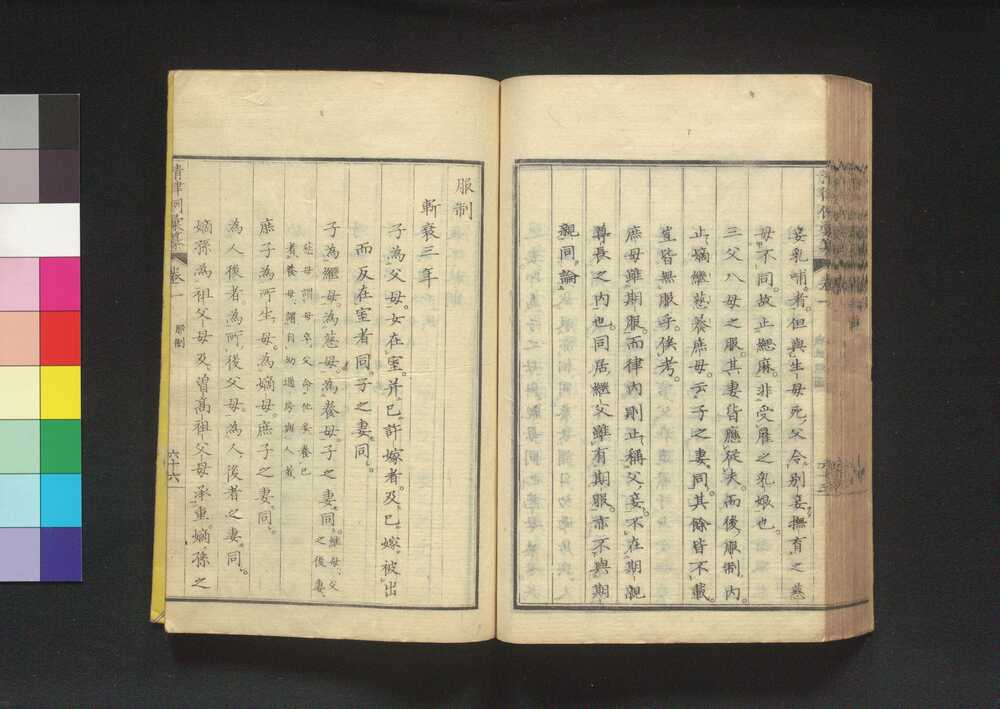 妾乳哺者。但與生母死、父令別妾撫育之慈
母不同。故止緦麻。非受雇之乳娘也。
三父八母之服。其妻皆應從夫。而後服制內。
止嫡繼慈養庶母。云子之妻同。其餘皆不載。
豈皆無服乎。俟考。
庶母雖期服。而律內則止稱父妾。不在期親
尊長之內也。同居繼父。雖有期服。亦不與期
親同論。
服制
斬衰三年
子為父母。女在室。并已許嫁者。及已嫁被出
而反在室者同。子之妻同。
子為繼母。為慈母。為養母。子之妻同。繼母、父之後妻
慈母、謂母卒、父命他妾養己
者。養母、謂自幼過房與人者
庶子為所生母。為嫡母。庶子之妻同。
為人後者。為所後父母。為人後者之妻同。
嫡孫為祖父母及曾高祖父母承重。嫡孫之
清律例彙纂
卷一
服制
六十六